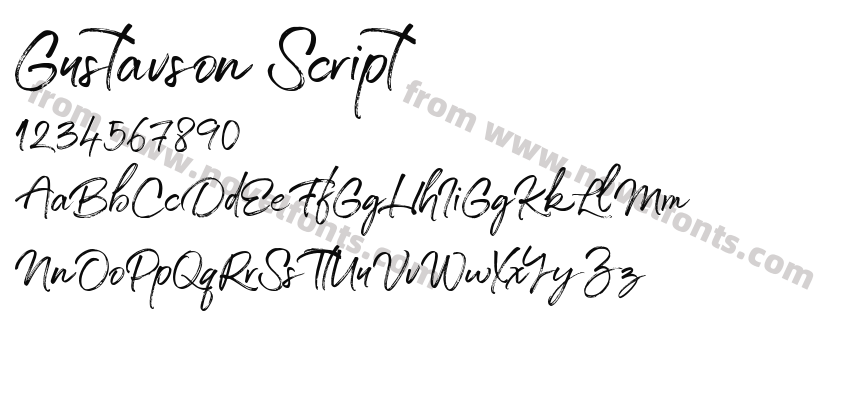 Gustavson Script
1234567890
AaBbCcDdEeFfGgHhIiGgKkLlMm
NnOoPpQqRrSsTtUuVvWwXxYyZz
from www.novelfonts.com
from www.novelfonts.com